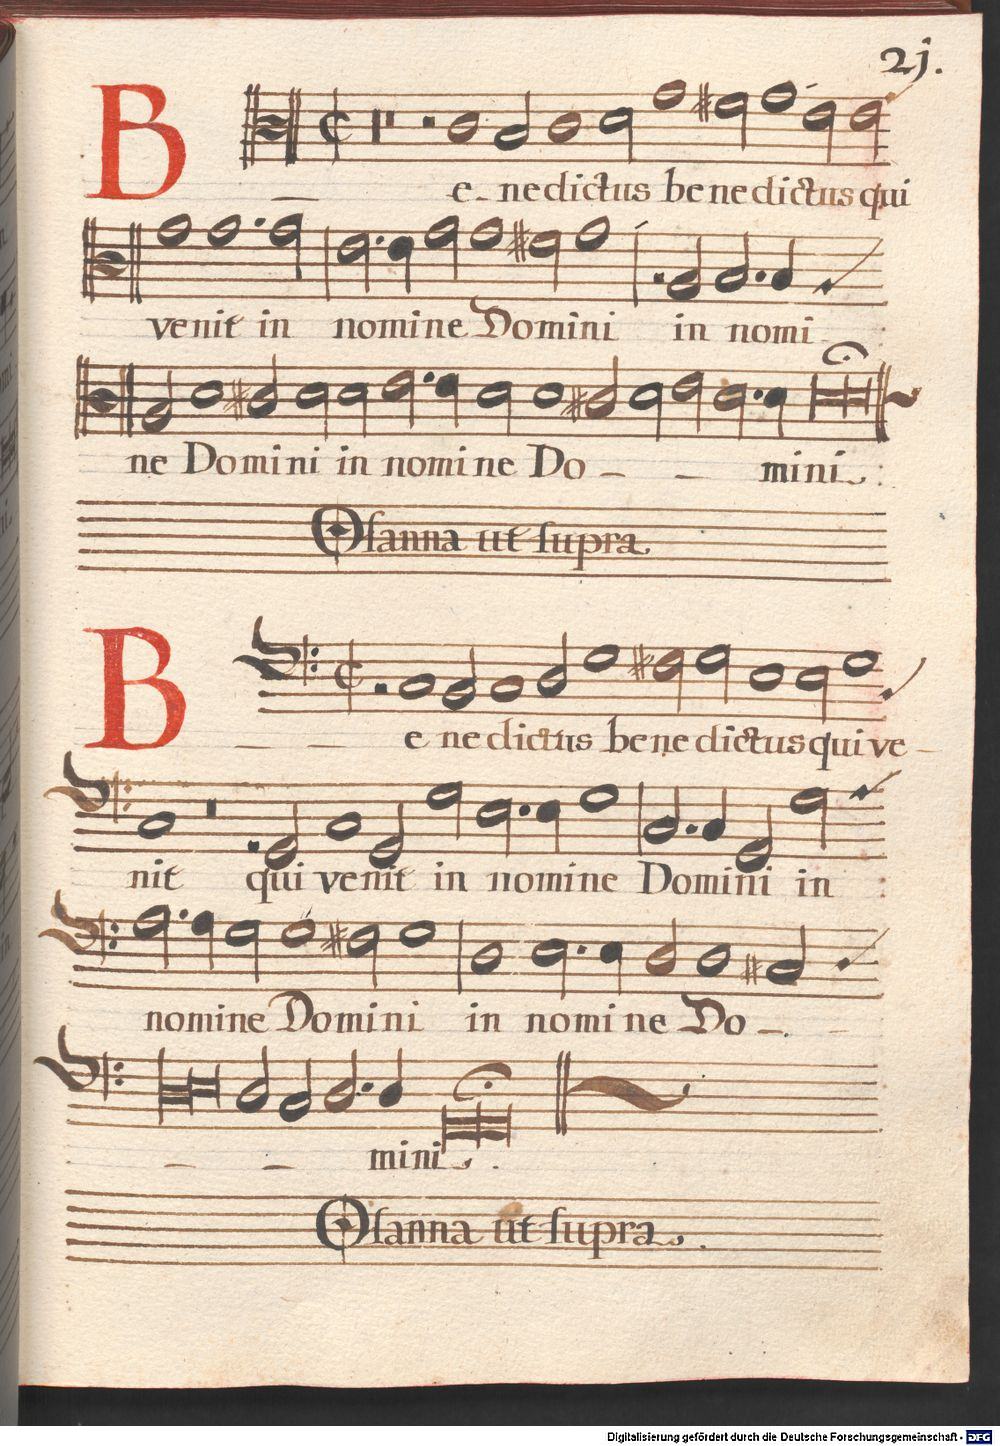 21.
B
e_ nedictus benedictus qui
venit in nomine Domini in nomi_
ne Domini in nomine Do _ _ mini.
Osanna ut supra
B
e nedictus benedictus qui ve_
nit qui venit in nomine Domini in
nomine Domini in nomine Do _
_ _ mini.
Osanna ut supra.
Digitalisierung gefördert durch die Deutsche Forschungsgemeinschaft - DFG